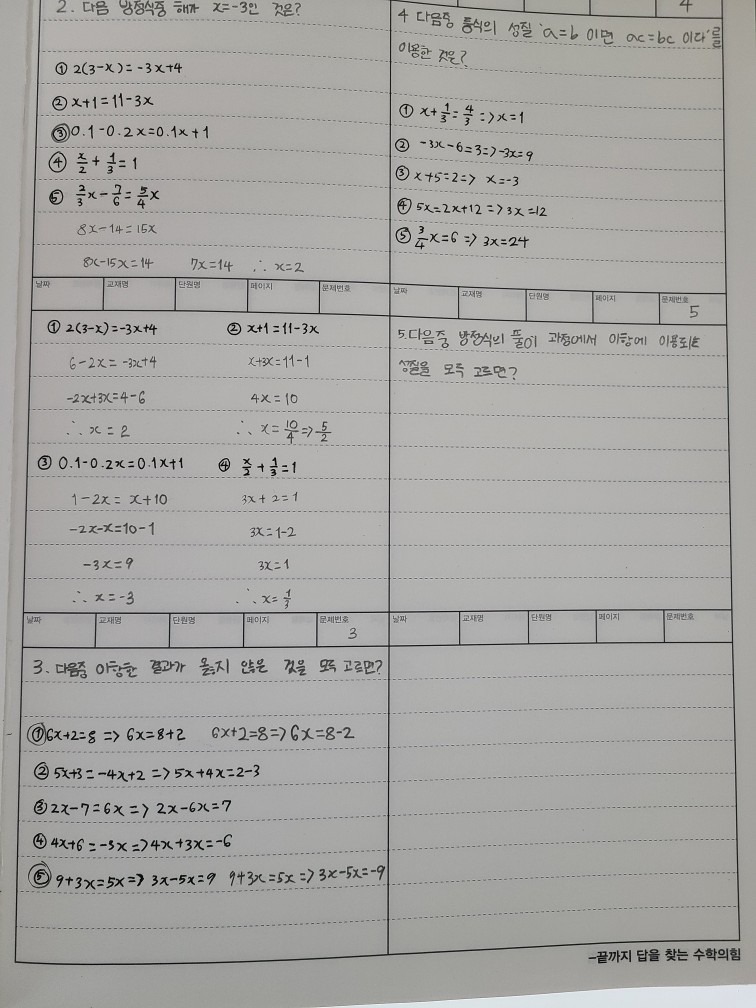 2. 다음 방정식중 해가 x=-3인 것은?
① 2(3-x)=-3x+4
② x+1=11-3x
③ 0.1-0.2x=0.1x+1
④ x/2+1/3=1
⑤ 2/3x-7/6=5/4x
8x-14=15x
8x-15x=14 7x=14 ∴ x=2
날짜 교재명 단원명 페이지 문제번호
① 2(3-x)=-3x+4 ② x+1=11-3x
6-2x=-3x+4 x+3x=11-1
-2x+3x=4-6 4x=10
∴ x=2 ∴ x=10/4=>5/2
③ 0.1-0.2x=0.1x+1 ④ x/2+1/3=1
1-2x=x+10 3x+2=1
-2x-x=10-1 3x=1-2
-3x=9 3x=1
∴ x=-3 ∴ x=1/3
날짜 교재명 단원명 페이지 문제번호
3
3. 다음중 이항한 결과가 옳지 않은 것을 모두 고르면?
① 6x+2=8=>6x=8+2 6x+2=8=>6x=8-2
② 5x+3=-4x+2=>5x+4x=2-3
③ 2x-7=6x=>2x-6x=7
④ 4x+6=-3x=>4x+3x=-6
⑤ 9+3x=5x=>3x-5x=9 9+3x=5x=>3x-5x=-9
4
4 다음중 등식의 성질 'a=b 이면 ac=bc 이다'를
이용한 것은?
① x+1/3=4/3=>x=1
② -3x-6=3=>-3x=9
③ x+5=2=> x=-3
④ 5x=2x+12=>3x=12
⑤ 3/4x=6=>3x=24
날짜 교재명 단원명 페이지 문제번호
5
5. 다음중 방정식의 풀이 과정에서 이항에 이용되는
성질을 모두 고르면?
날짜 교재명 단원명 페이지 문제번호
-끝까지 답을 찾는 수학의힘